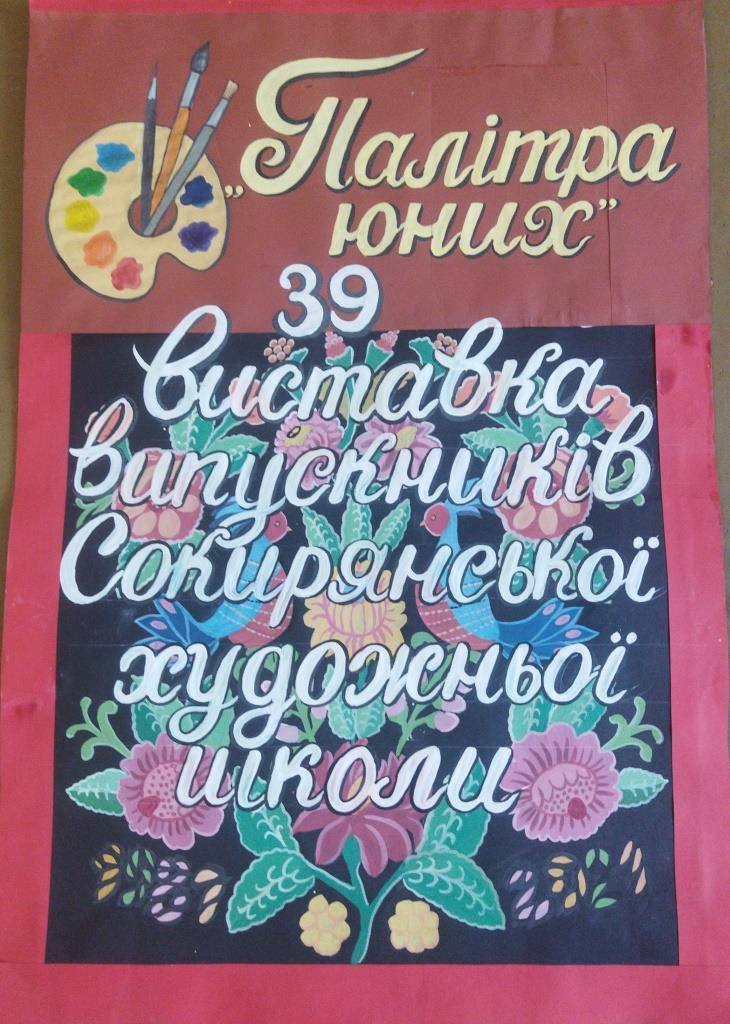 „Палітра
юних”
39
виставка
випускників
Сокирянської
художньої
школи
2021